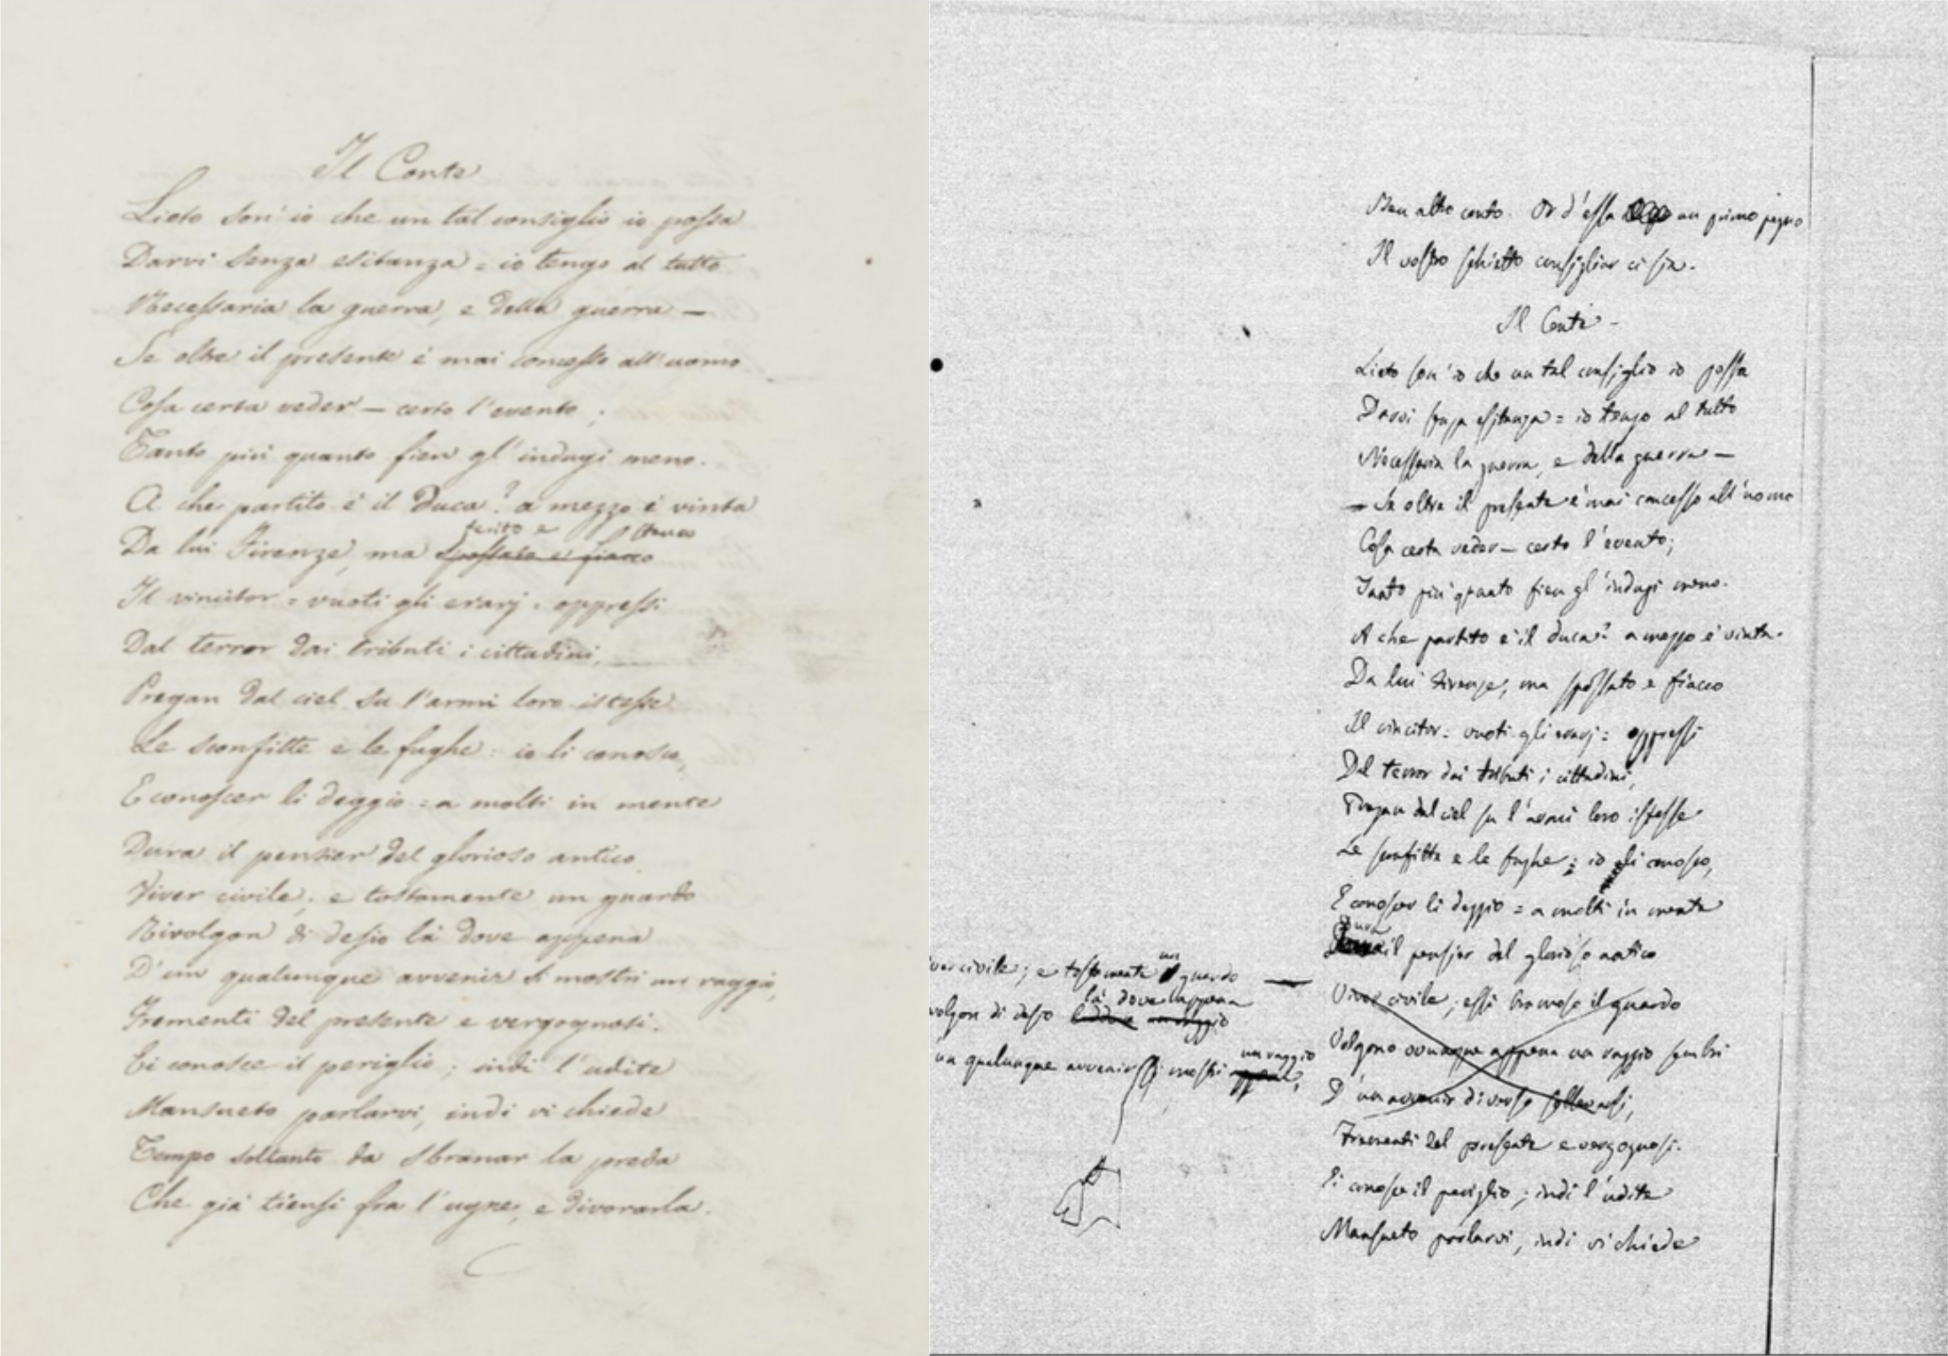 Il Conte
Lieto son' io che un tal consiglio io possa
Darvi senza esitanza = io tengo al tutto
Necessaria la guerra, e della guerra —
Se oltre il presente è mai concesso all'uomo
Cosa certa veder — certo l'evento;
Tanto più quanto fien gl'indugi meno.
A che partito è il Duca? a mezzo è vinta
ferito e stanco
Da lui Firenze, ma spossato e fiacco
Il vincitor = vuoti gli erarj = oppressi
Dal terror dai tributi i cittadini,
Pregan dal ciel su l'armi loro istesse
Le sconfitte e le fughe: io li conosco,
E conoscer li deggio = a molti in mente
Dura il pensier del glorioso antico
Viver civile; e tostamente un guardo
Rivolgon di desio là dove appena
D'un qualunque avvenir si mostri un raggio,
Frementi del presente e vergognosi.
Ei conosce il periglio; indi l'udite
Mansueto parlarvi, indi vi chiede
Tempo soltanto da sbranar la preda
Che già tiensi fra l'ugne, e divorarla.
altro conto. Or d'essa un primo pegno
Il vostro schietto consigliar ci sia.
Il Conte -
Lieto son'io che un tal consiglio io possa
Darvi senza esitanza = io tengo al tutto
Necessaria la guerra, e della guerra —
— Se oltre il presente è mai concesso all'uomo
Cosa certa veder — certo l'evento;
Tanto più quanto fien gl'indugi meno.
A che partito è il Duca? a mezzo è vinta.
Da lui Firenze, ma spossato e fiacco
Il vincitor = vuoti gli erarj = oppressi
Dal terror dai tributi i cittadini,
Pregan dal ciel su l'armi loro istesse
Le sconfitte e le fughe; io li conosco,
E conoscer li deggio = a molti in mente
Dura
il pensier del glorioso antico
Viver civile; essi bramoso il guardo
Volgono ovunque appena un raggio sembri
D'un avvenir diverso sollevarsi,
Frementi del presente e vergognosi.
Ei conosce il periglio; indi l'udite
Mansueto parlarvi, indi vi chiede
iver civile; e tostamente un guardo
là dove appena
volgon di desio laddove un raggio
un raggio
un qualunque avvenir si mostri appena,